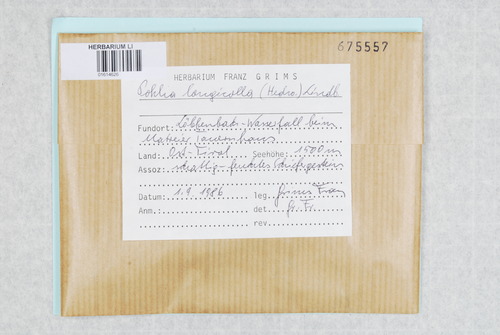 HERBARIUM LI
675557
HERBARIUM FRANZ GRIMS
Pohlia longicolla (Hedw.) Lindb
Fundort: Löbbenbach-Wasserfall beim
Matreier Tauernhaus
Land: Ost-Tirol Seehöhe: 1500m
Assoz: schattig-feuchtes
Datum: 1.9.1986 leg. Grims Franz
Anm.: det. Gr. Fr.
rev.